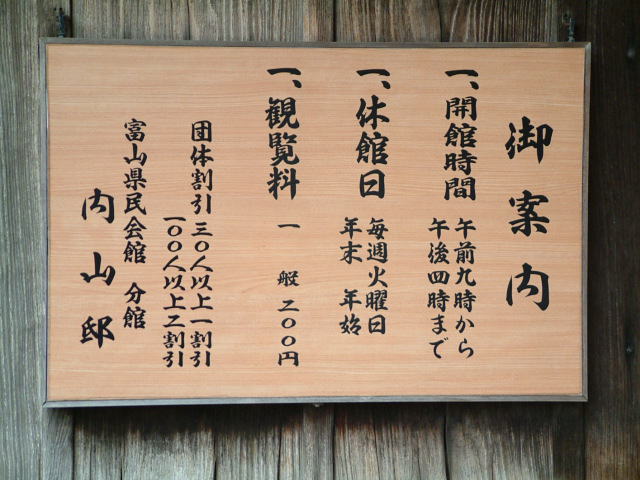 御案内
一、開館時間
午前九時から
午後四時まで
一、休館日
毎週火曜日
年末 年始
一、観覧料
一 般 二〇〇円
団体割引 三〇人以上一割引
一〇〇人以上二割引
富山県民会館 分館
内山邸